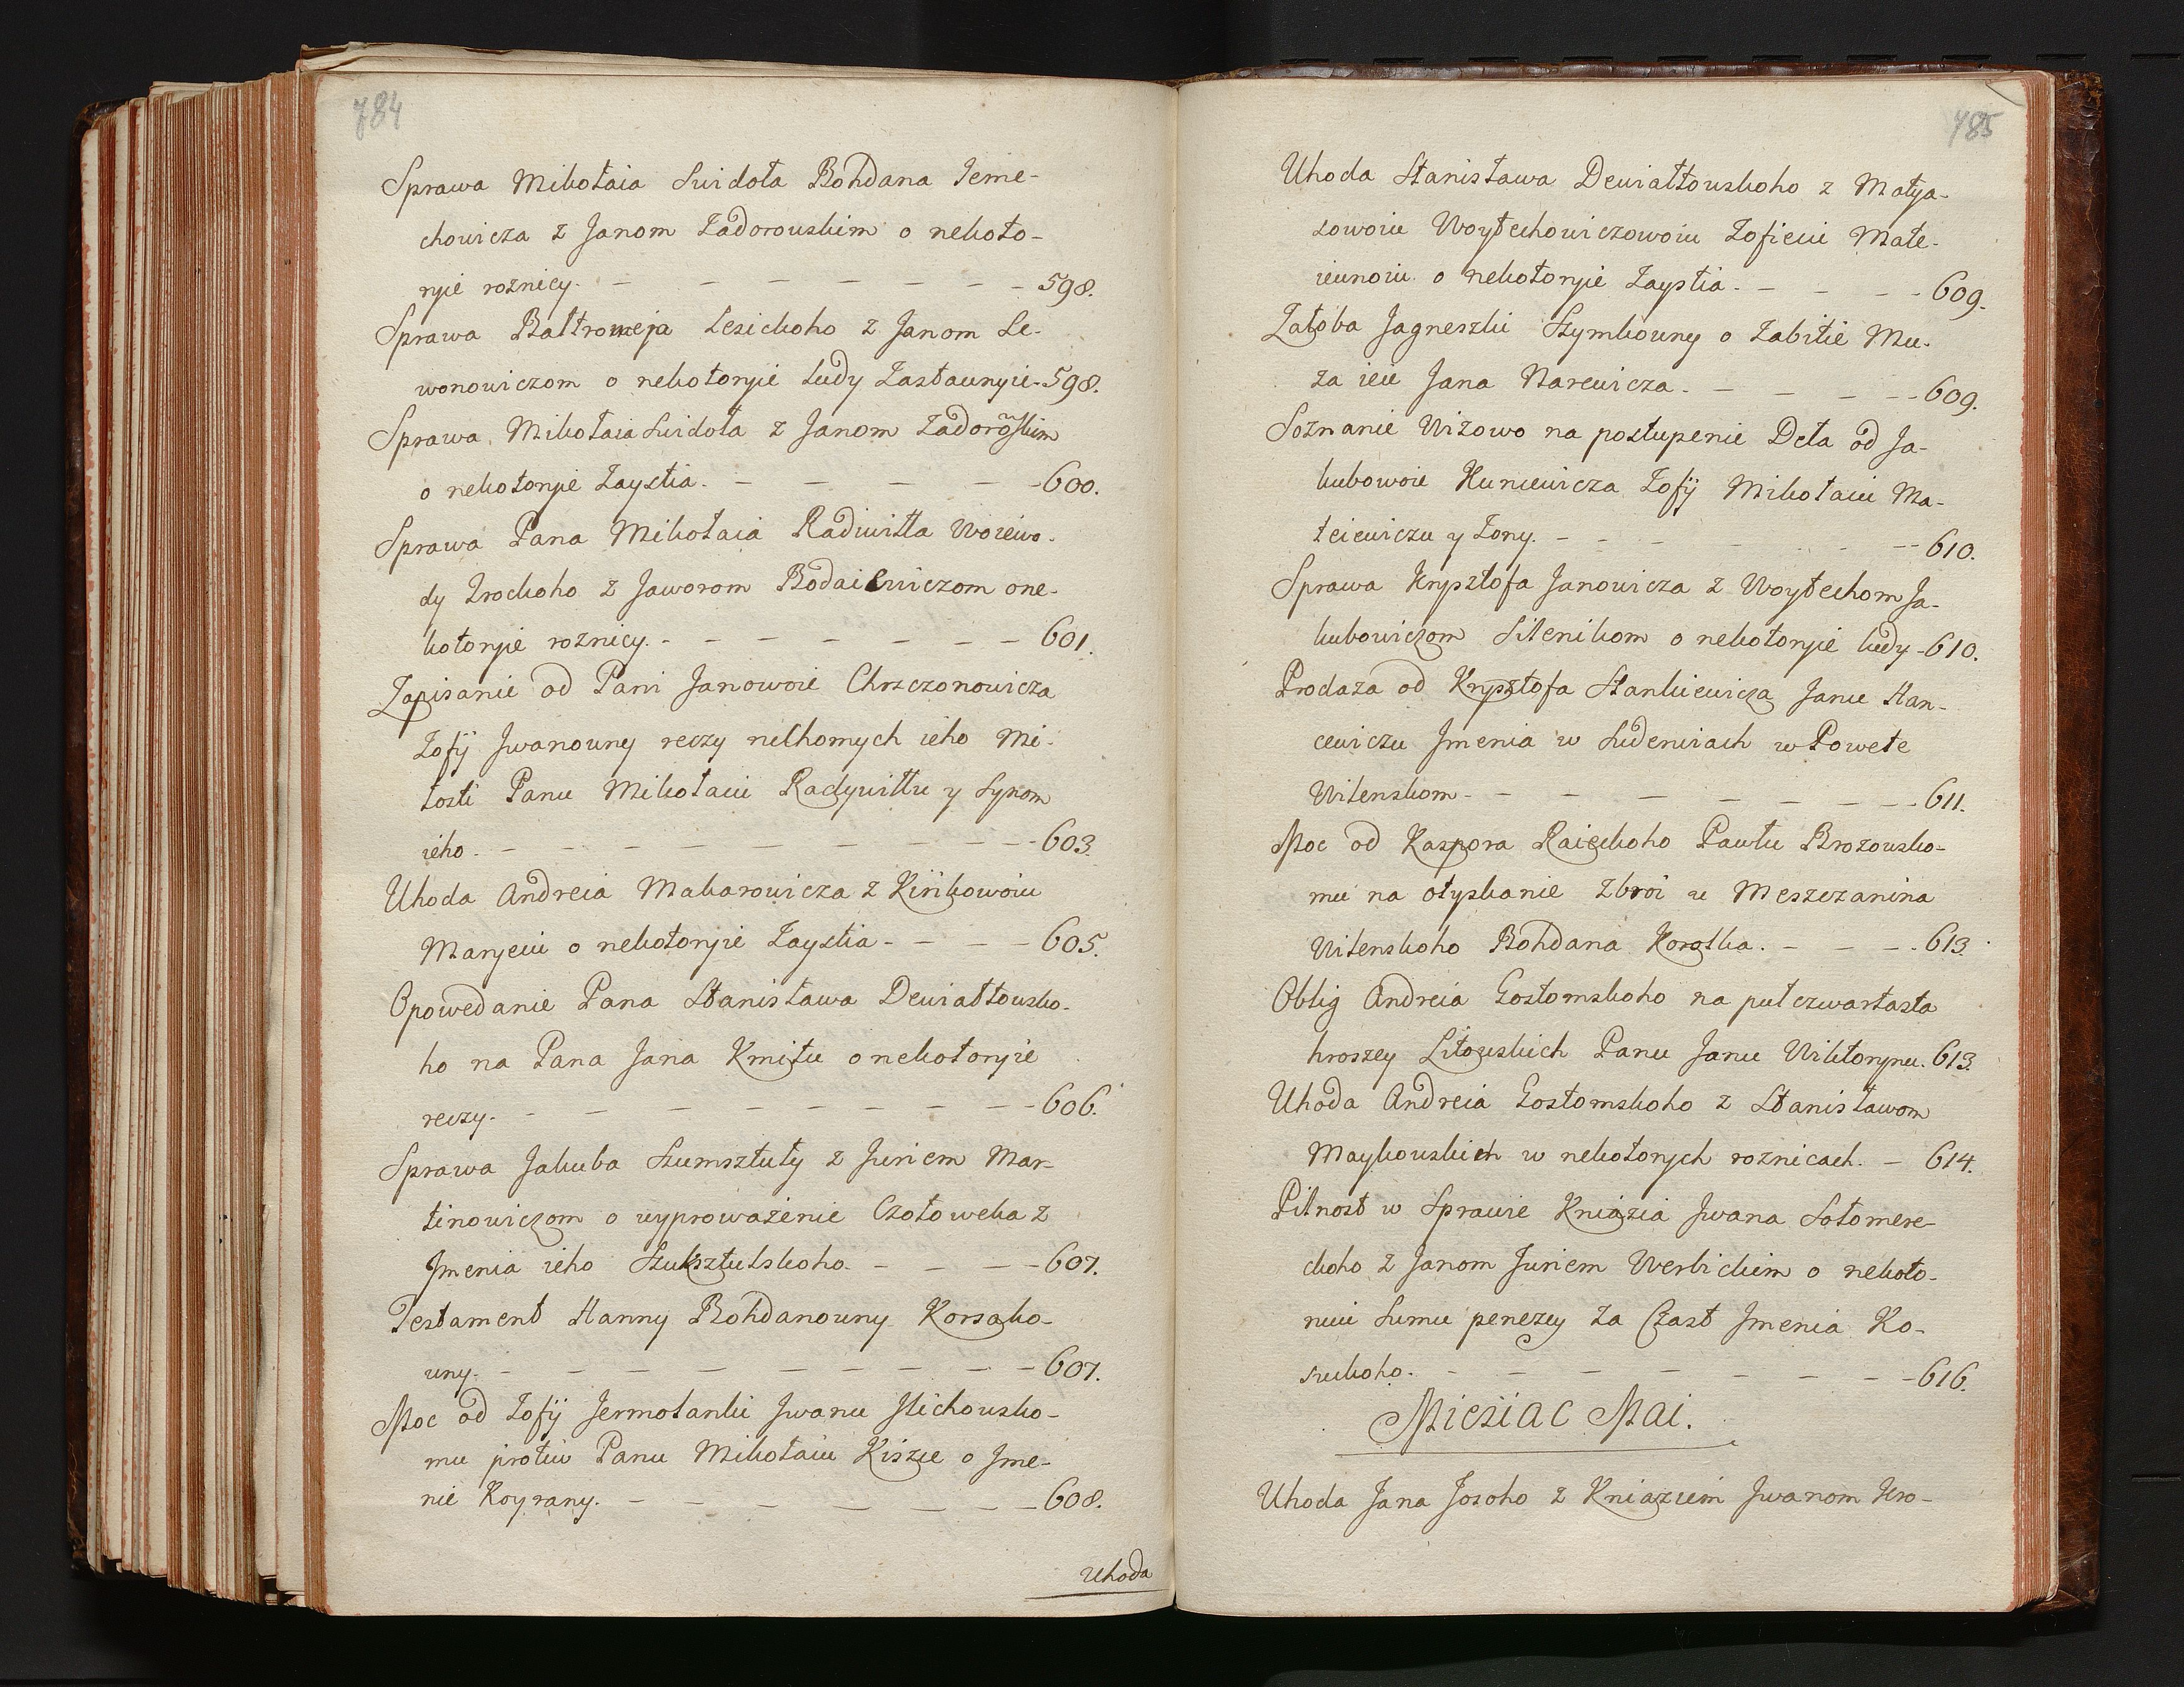 784
Sprawa Mikołaia Swidoła Bohdana Jeme-
chowicza z Janom Zadorouskim o nekoto-
ryie roznicy. - - - - - - - 598.
Sprawa Bałtromeja Lesickoho z Janom Le-
wonowiczom o nekotoryie ludy Zastaunyie - 598.
Sprawa Mikołaia Swidoła z Janom Zadoroskim
o nekotoryie Zaystia. - - - - - 600.
Sprawa Pana Mikołaia Radiwiłła Woiewo-
dy Trockoho z Jaworom Bodaiewiczom one-
kotoryie roznicy. - - - - - - - 601.
Zapisanie od Pani Janowoie Chrszczonowicza
Zofij Jwanouny reczy ruchomych ieho Mi-
łosti Panu Mikołaiu Radywiłłu y Synom
ieho. - - - - - - - - 603.
Uhoda Andreia Makarowicza z Kińkowoiu
Maryeiu o nekotoryie Zaystia - - - - 605.
Opowedanie Pana Stanisława Dewiałtousko-
ho na Pana Jana Kmitu o nekotoryie
reczy. - - - - - - - - 606.
Sprawa Jakuba Szumsztuły z Juriem Mar-
tinowiczom o wyproważenie Czołoweka z
Jmenia ieho Szuksztulskoho. - - - - 607.
Testament Hanny Bohdanouny Korsako-
uny. - - - - - - - - 607.
Moc od Zofij Jermolanki Jwanu Jlichousko-
mu protiw Panu Mikołaiu Kiszce o Jme-
nie Koyrany. - - - - - - - 608.
Uhoda
785
Uhoda Stanisława Dewiałtouskoho z Matya-
sowoiu Woytechowiczowoiu Zofieiu Mate-
ieunoiu o nekotoryie Zaystia. - - - - 609.
Załoba Jagneszki Szymkouny o Zabitie Mu-
za ieie Jana Narewicza. - - - - - 609.
Soznanie Wizowo na postupenie Deła od Ja-
kubowoie Kuncewicza Zofij Mikołaiu Ma-
teiewiczu y Zony. - - - - - - 610.
Sprawa Krysztofa Janowicza z Woytechom Ja-
kubowiczom Silenikom o nekotoryie ludy - 610.
Prodaza od Krysztofa Stankiewicza Janu Han-
cewiczu Jmenia w Ludewiach w Powete
Wilenskom - - - - - - - - 611.
Moc od Kaspora Raieckoho Pawłu Brozousko-
mu na otyskanie Zbroi u Meszczanina
Wilenskoho Bohdana Korotka. - - - - 613.
Oblig Andreia Gostomskoho na puł czwartasta
hroszey Litouskich Panu Janu Wiktorynu. 613.
Uhoda Andreia Gostomskoho z Stanisławom
Maykouskich w nekotorych roznicach. - 614.
Pilnost w Sprawie Kniazia Jwana Sołomere-
ckoho z Janom Juriem Werbickim o nekoto-
ruiu Sumu penezey Za Czast Jmenia Ko-
- - - - - - - - 616.
Miesiac Mai.
Uhoda Jana Jozoho z Kniaziem Jwanom Kro-